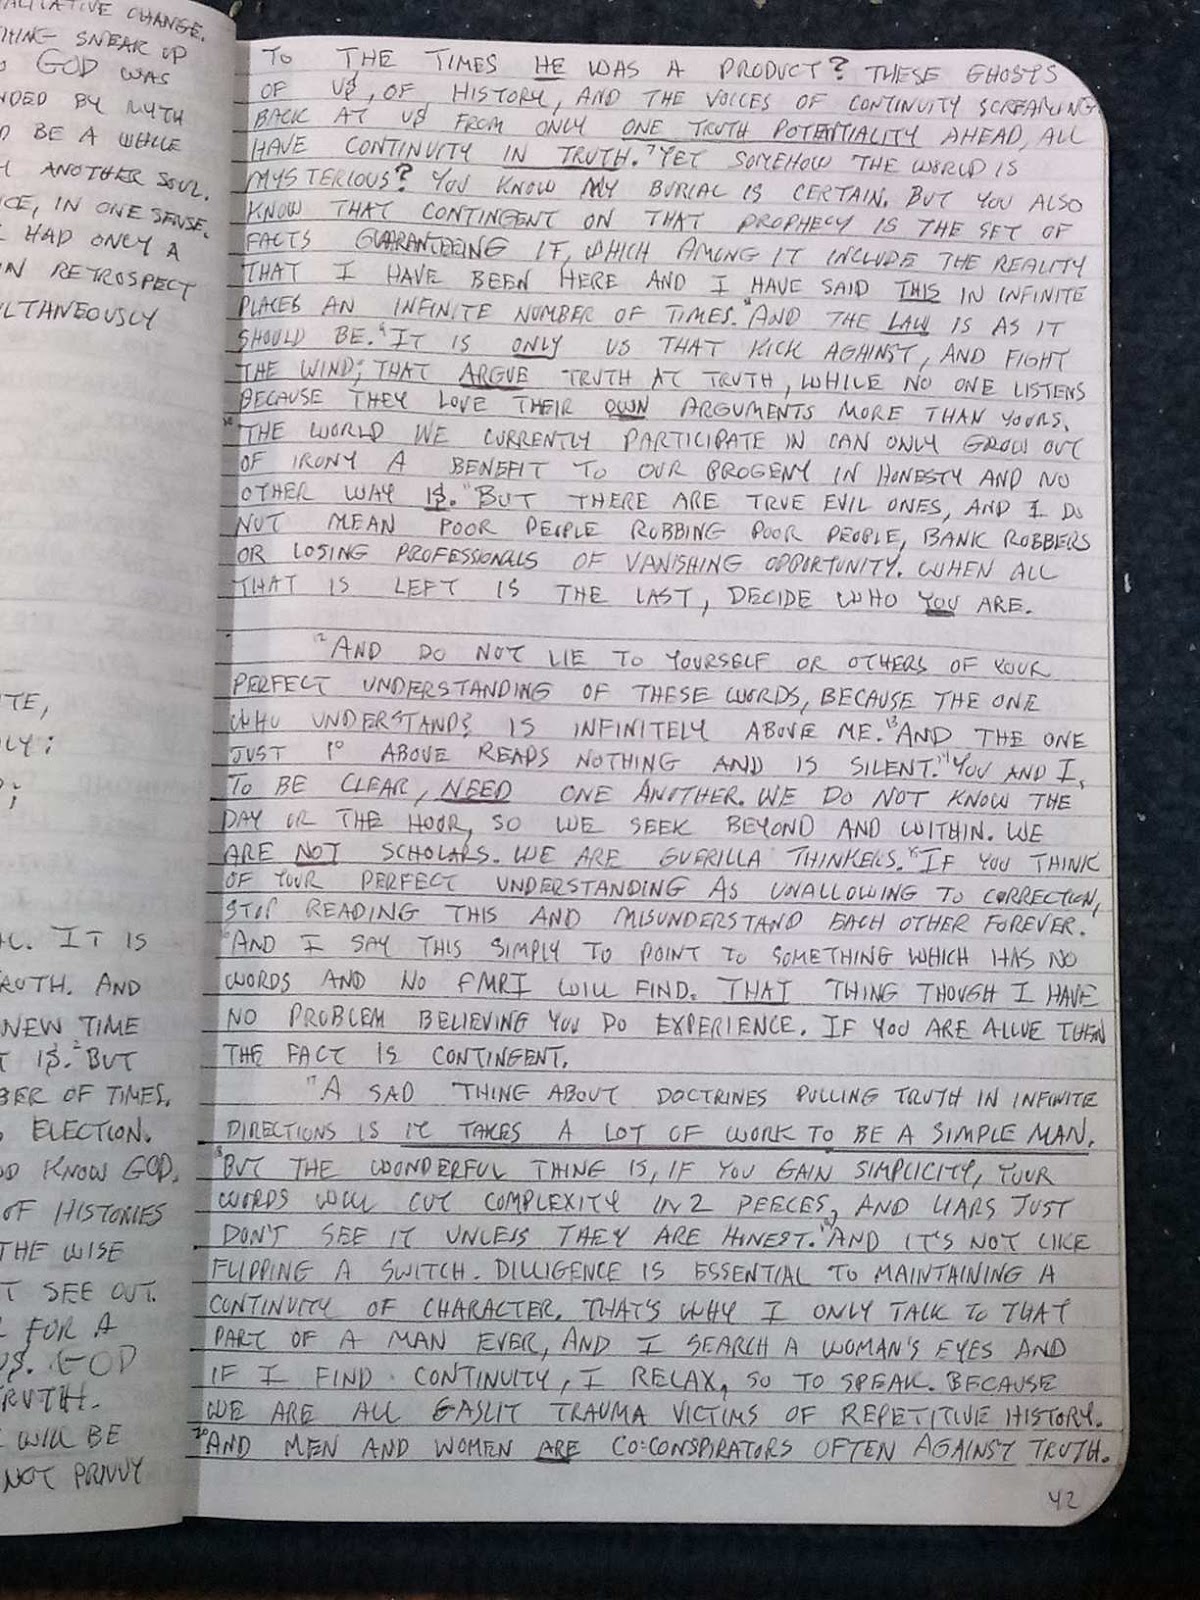 ALITATIVE CHANGE.
THING SNEAK UP
O GOD WAS
NDED BY MYTH
D BE A WHILE
H ANOTHER SOUL.
ICE, IN ONE SENSE.
I HAD ONLY A
IN RETROSPECT
ULTANEOUSLY
TE,
LY;
IC. IT IS
RUTH. AND
NEW TIME
T IS. ²BUT
BER OF TIMES.
ELECTION.
D KNOW GOD,
OF HISTORIES
THE WISE
T SEE OUT.
L FOR A
US. GOD
RUTH.
I WILL BE
NOT PRIVVY
TO THE TIMES HE WAS A PRODUCT? THESE GHOSTS
OF US, OF HISTORY, AND THE VOICES OF CONTINUITY SCREAMING
BACK AT US FROM ONLY ONE TRUTH POTENTIALITY AHEAD, ALL
HAVE CONTINUITY IN TRUTH. ⁷YET SOMEHOW THE WORLD IS
MYSTERIOUS? YOU KNOW MY BURIAL IS CERTAIN. BUT YOU ALSO
KNOW THAT CONTINGENT ON THAT PROPHECY IS THE SET OF
FACTS GUARANTEEING IT, WHICH AMONG IT INCLUDE THE REALITY
THAT I HAVE BEEN HERE AND I HAVE SAID THIS IN INFINITE
PLACES AN INFINITE NUMBER OF TIMES. ⁸AND THE LAW IS AS IT
SHOULD BE. ⁹IT IS ONLY US THAT KICK AGAINST, AND FIGHT
THE WIND; THAT ARGUE TRUTH AT TRUTH, WHILE NO ONE LISTENS
BECAUSE THEY LOVE THEIR OWN ARGUMENTS MORE THAN YOURS.
¹⁰THE WORLD WE CURRENTLY PARTICIPATE IN CAN ONLY GROW OUT
OF IRONY A BENEFIT TO OUR PROGENY IN HONESTY AND NO
OTHER WAY IS. ¹¹BUT THERE ARE TRUE EVIL ONES, AND I DO
NOT MEAN POOR PEOPLE ROBBING POOR PEOPLE, BANK ROBBERS
OR LOSING PROFESSIONALS OF VANISHING OPPORTUNITY. WHEN ALL
THAT IS LEFT IS THE LAST, DECIDE WHO YOU ARE.
¹²AND DO NOT LIE TO YOURSELF OR OTHERS OF YOUR
PERFECT UNDERSTANDING OF THESE WORDS, BECAUSE THE ONE
WHO UNDERSTANDS IS INFINITELY ABOVE ME. ¹³AND THE ONE
JUST 1° ABOVE READS NOTHING AND IS SILENT. ¹⁴YOU AND I,
TO BE CLEAR, NEED ONE ANOTHER. WE DO NOT KNOW THE
DAY OR THE HOUR, SO WE SEEK BEYOND AND WITHIN. WE
ARE NOT SCHOLARS. WE ARE GUERILLA THINKERS. ¹⁵IF YOU THINK
OF YOUR PERFECT UNDERSTANDING AS UNALLOWING TO CORRECTION,
STOP READING THIS AND MISUNDERSTAND EACH OTHER FOREVER.
¹⁶AND I SAY THIS SIMPLY TO POINT TO SOMETHING WHICH HAS NO
WORDS AND NO FMRI WILL FIND. THAT THING THOUGH I HAVE
NO PROBLEM BELIEVING YOU DO EXPERIENCE. IF YOU ARE ALIVE THEN
THE FACT IS CONTINGENT.
¹⁷A SAD THING ABOUT DOCTRINES PULLING TRUTH IN INFINITE
DIRECTIONS IS IT TAKES A LOT OF WORK TO BE A SIMPLE MAN.
¹⁸BUT THE WONDERFUL THING IS, IF YOU GAIN SIMPLICITY, YOUR
WORDS WILL CUT COMPLEXITY IN 2 PEECES, AND LIARS JUST
DON'T SEE IT UNLESS THEY ARE HONEST. ¹⁹AND IT'S NOT LIKE
FLIPPING A SWITCH. DILLIGENCE IS ESSENTIAL TO MAINTAINING A
CONTINUITY OF CHARACTER. THAT'S WHY I ONLY TALK TO THAT
PART OF A MAN EVER, AND I SEARCH A WOMAN'S EYES AND
IF I FIND CONTINUITY, I RELAX, SO TO SPEAK. BECAUSE
WE ARE ALL GASLIT TRAUMA VICTIMS OF REPETITIVE HISTORY.
²⁰AND MEN AND WOMEN ARE CO:CONSPIRATORS OFTEN AGAINST TRUTH.
42